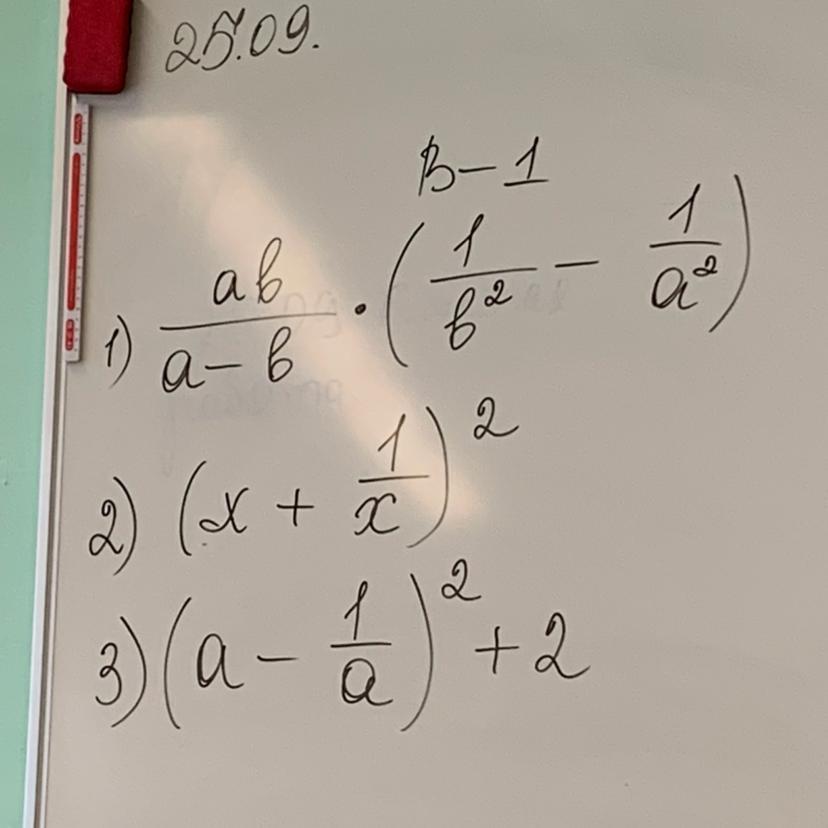 25.09.
В-1
1) \frac{ab}{a-b} \cdot \left( \frac{1}{b^2} - \frac{1}{a^2} \right)
2) \left( x + \frac{1}{x} \right)^2
3) \left( a - \frac{1}{a} \right)^2 + 2